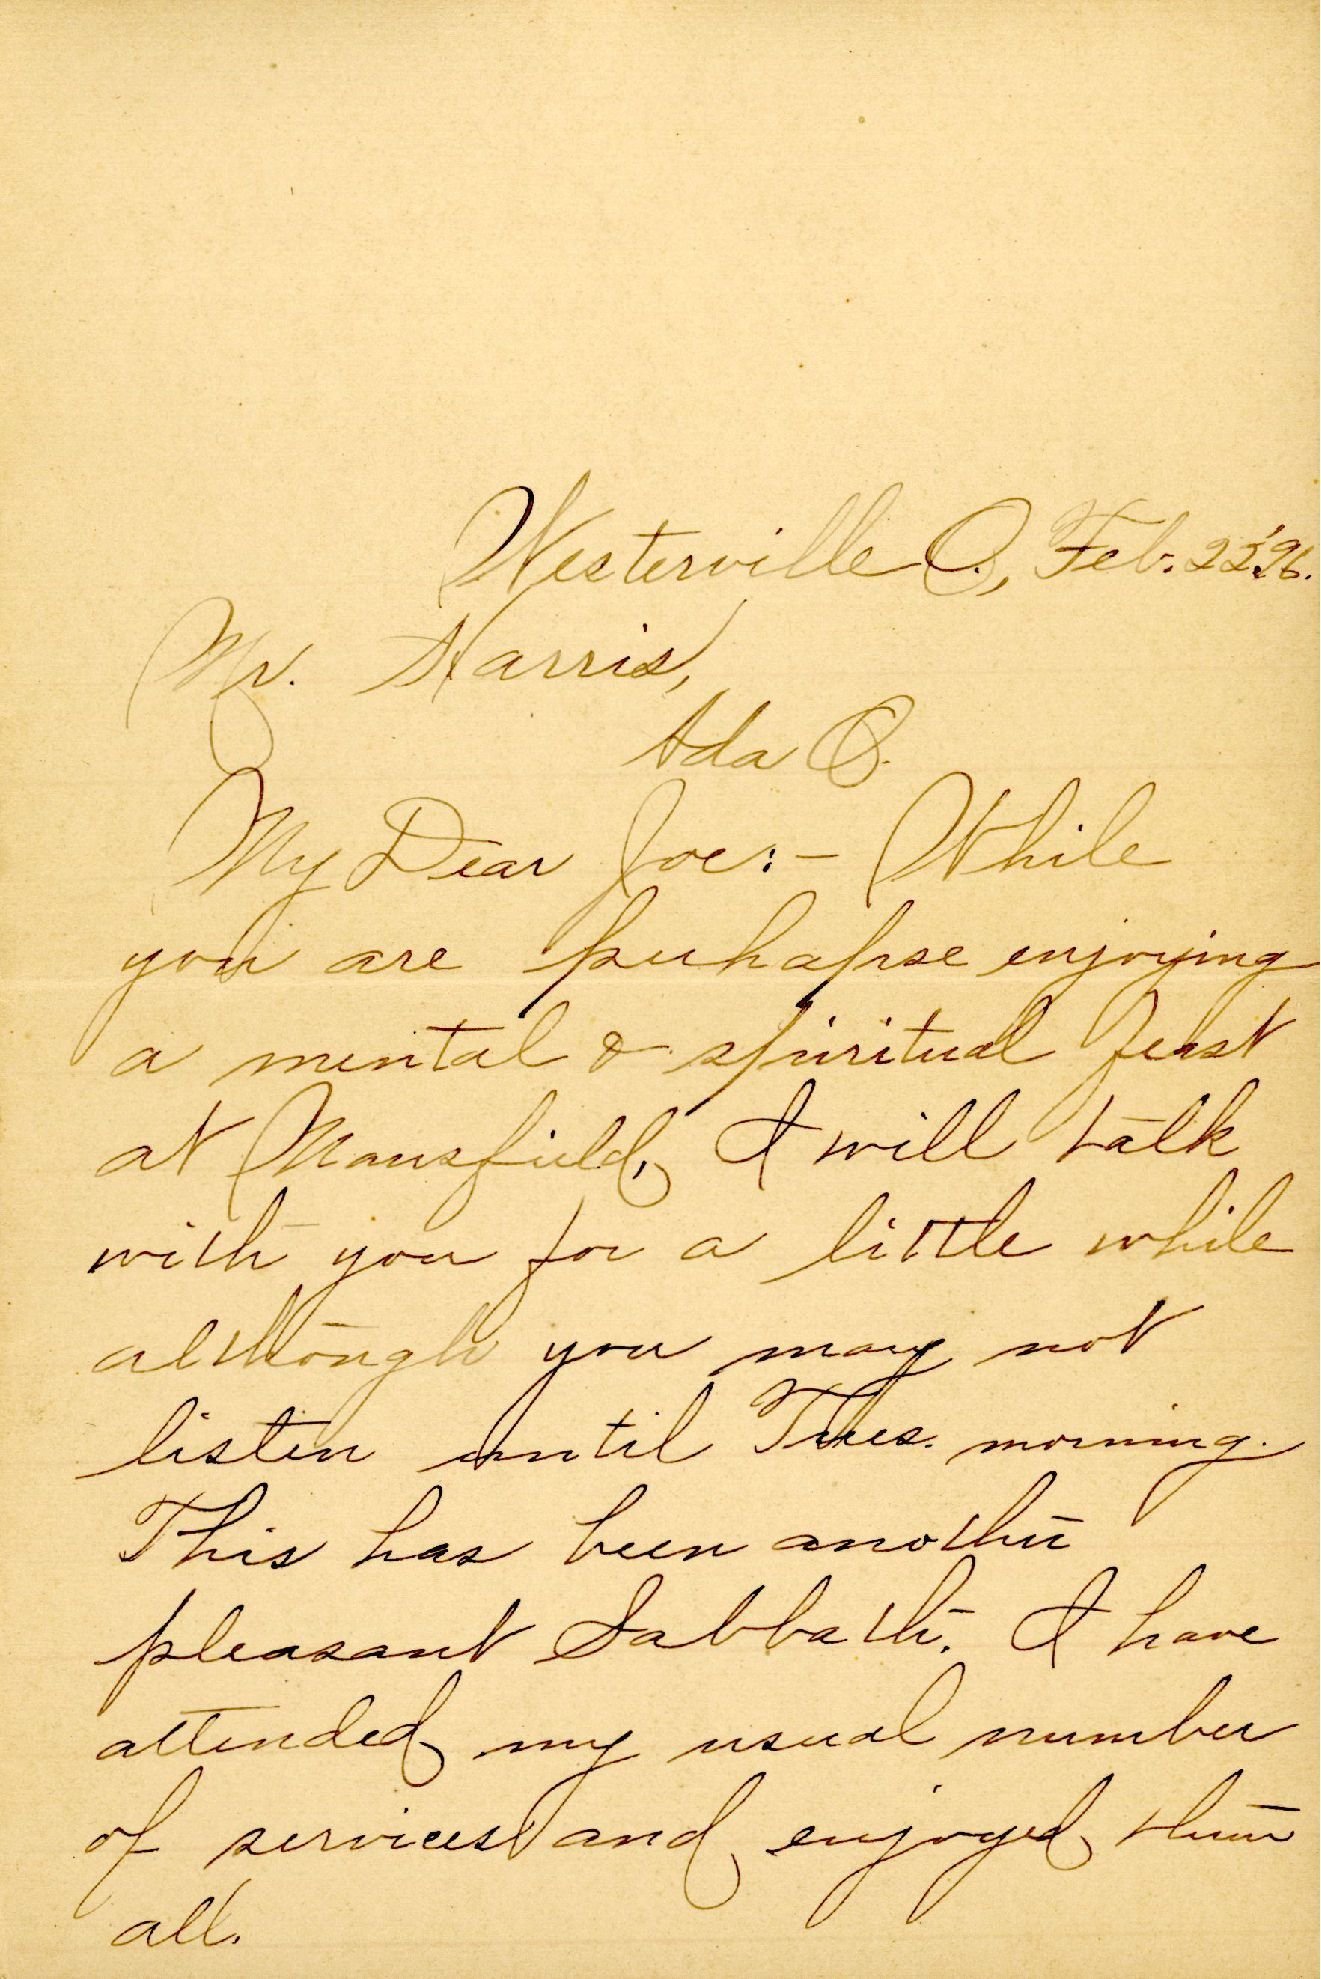 Westerville O., Feb. 23, '96.
Mr. Harris,
Ada O.
My Dear Joe:- While
you are perhapse enjoying
a mental & spiritual feast
at Mansfield, I will talk
with you for a little while
although you may not
listen until Tues. morning.
This has been another
pleasant Sabbath. I have
attended my usual number
of services and enjoyed them
all.